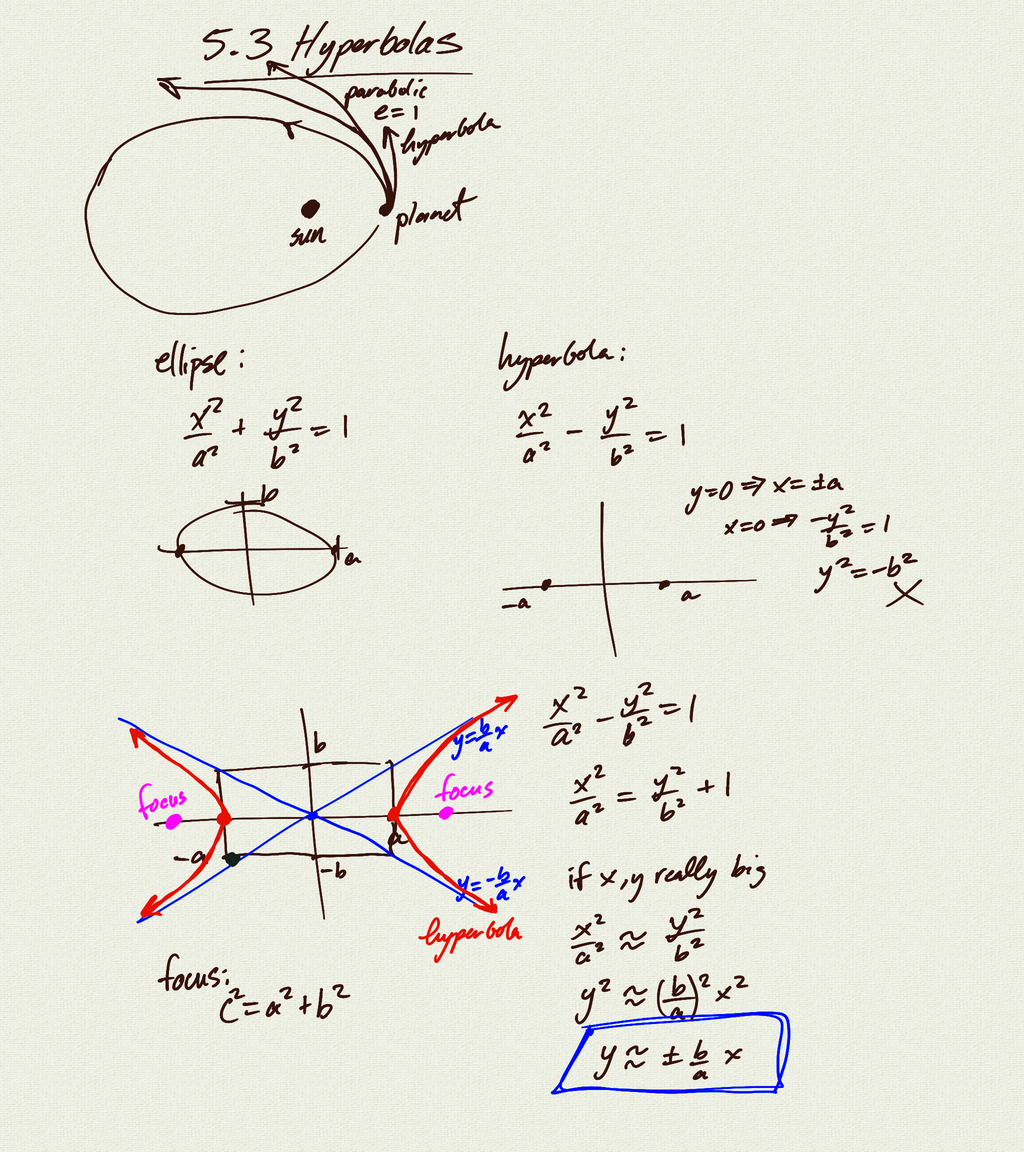 5.3 Hyperbolas
parabolic
e=1
hyperbola
planet
sun
ellipse:
x²/a² + y²/b² = 1
b
a
hyperbola:
x²/a² - y²/b² = 1
y=0 ⇒ x=±a
x=0 ⇒ -y²/b² = 1
y²=-b²
-a
a
b
y=b/a x
focus
focus
-a
a
-b
y=-b/a x
hyperbola
focus:
c²=a²+b²
x²/a² - y²/b² = 1
x²/a² = y²/b² + 1
if x, y really big
x²/a² ≈ y²/b²
y² ≈ (b/a)² x²
y ≈ ± b/a x